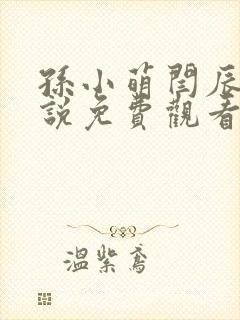 孫小萌閆辰
說免費觀看
溫紫鳶